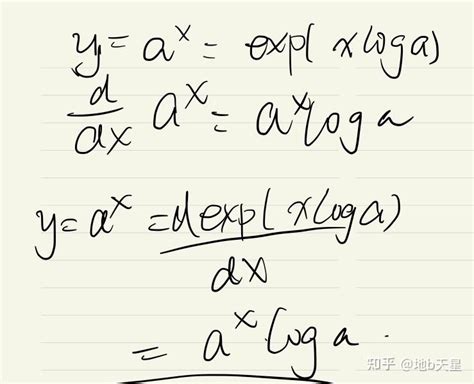 y = a^x = exp( x log a)
d/dx a^x = a^x log a
y = a^x = d exp( x log a)/dx
= a^x log a
知乎 @地b天星